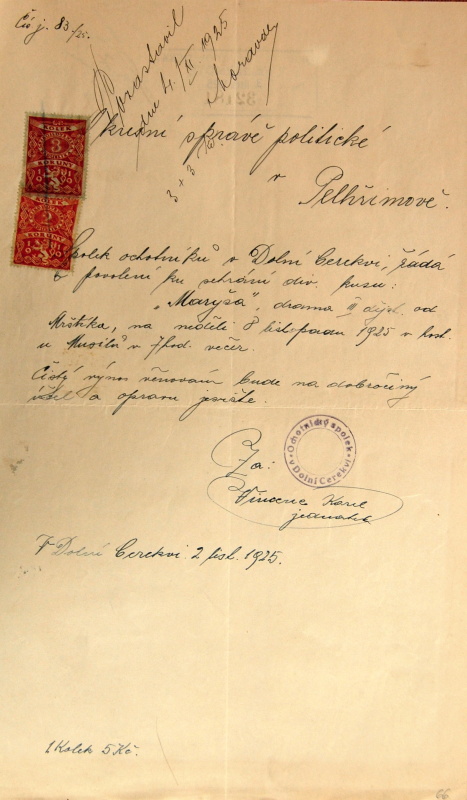 Čís j. 83/25.
dne 4./XI 1925
3 + 3 Kč
Okresní správě politické
v Pelhřimově.
KOLEK
3
KORUNY
KOLEK
KORUNY
Spolek ochotníků v Dolní Cerekvi, žádá
o povolení ku sehrání div. kusu:
„Maryša", drama III dějst. od
Mrštíka, na neděli 8 listopadu 1925 v host.
u Musilů v 7 hod. večer.
Čistý výnos věnován bude na dobročinný
účel a opravu jeviště.
Ochotnický spolek
v Dolní Cerekvi
Za:
Vincenc Karel
jednatel
V Dolní Cerekvi 2 list. 1925.
1 Kolek 5 Kč.
66